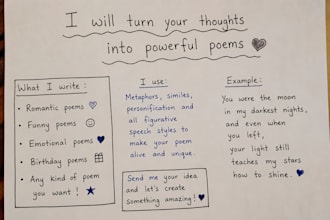 I will turn your thoughts
into powerful poems
What I write:
• Romantic poems
• Funny poems
• Emotional poems
• Birthday poems
• Any kind of poem
you want!
I use:
Metaphors, similes,
personification and
all figurative
speech styles to
make your poem
alive and unique.
Send me your idea
and let's create
something amazing!
Example:
You were the moon
in my darkest nights,
and even when
you left,
your light still
teaches my stars
how to shine.